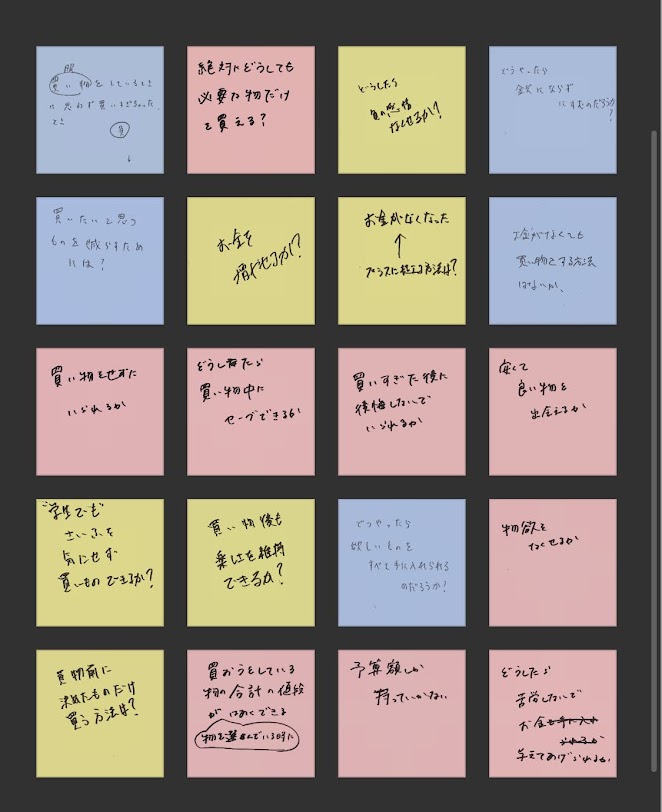 服
買い物をしているとき
に思わず買いすぎちゃった
とき
負
↓
絶対にどうしても
必要な物だけ
を買える?
どうしたら
負の感情
なくせるか?
どうやったら
金欠にならず
にすむのだろうか
?
買いたいと思う
ものを減らすため
には?
お金を
増やせるか!?
お金がなくなった
↑
プラスに捉える方法は?
お金がなくても
買い物をする方法
はないか、
買い物をせずに
いられるか
どうしたら
買い物中に
セーブできるか
買いすぎた後に
後悔しないで
いられるか
安くて
良い物を
出会えるか
学生でも
さいふを
気にせず
買いものできるか?
買い物後も
楽しさを維持
できるか?
どうやったら
欲しいものを
すべて手に入れられる
のだろうか?
物欲を
なくせるか
買物前に
決めたものだけ
買う方法は?
買おうとしている
物の合計の値段
がはあくできる
物を選んでいる時に
予算額しか
持っていかない
どうしたら
苦労しないで
お金を手に入れ
られるか
与えてあげられるか